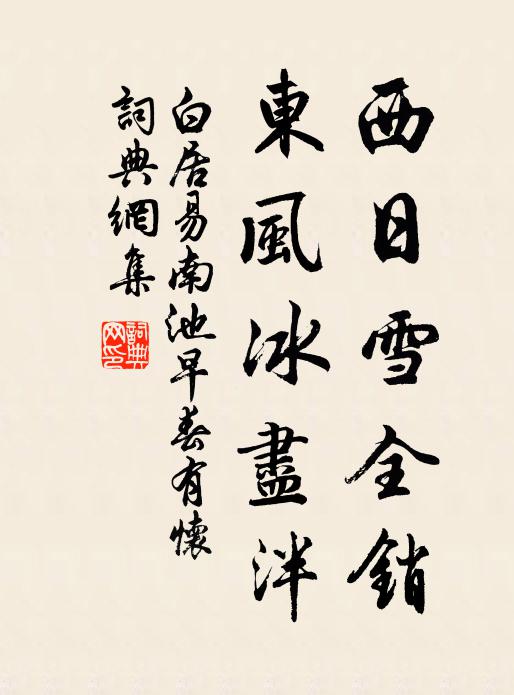 西日雪全銷
東風冰盡泮
白居易南池早春有懷
詞典網集
詞典網印